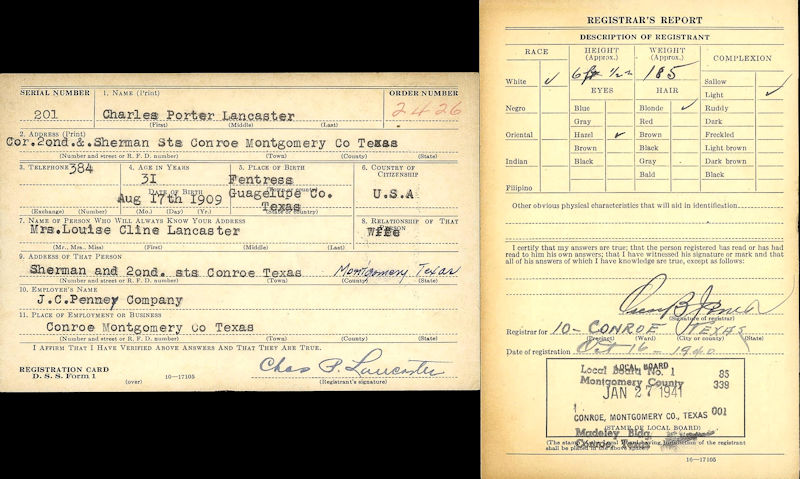 SERIAL NUMBER
1. NAME (Print)
ORDER NUMBER
201
Charles Porter Lancaster
2426
(First) (Middle) (Last)
2. ADDRESS (Print)
Cor.2ond.&.Sherman Sts Conroe Montgomery Co Texas
(Number and street or R. F. D. number) (Town) (County) (State)
3. TELEPHONE 384
4. AGE IN YEARS
31
5. PLACE OF BIRTH
Fentress
6. COUNTRY OF CITIZENSHIP
DATE OF BIRTH
Guagelupe Co.
U.S.A
Aug 17th 1909
Texas
(Exchange) (Number) (Mo.) (Day) (Yr.) (State or country)
7. NAME OF PERSON WHO WILL ALWAYS KNOW YOUR ADDRESS
8. RELATIONSHIP OF THAT PERSON
Mrs.Louise Cline Lancaster
Wife
(Mr., Mrs., Miss) (First) (Middle) (Last)
9. ADDRESS OF THAT PERSON
Sherman and 2ond. sts Conroe Texas Montgomery Texas
(Number and street or R. F. D. number) (Town) (County) (State)
10. EMPLOYER'S NAME
J.C.Penney Company
11. PLACE OF EMPLOYMENT OR BUSINESS
Conroe Montgomery Co Texas
(Number and street or R. F. D. number) (Town) (County) (State)
I AFFIRM THAT I HAVE VERIFIED ABOVE ANSWERS AND THAT THEY ARE TRUE.
REGISTRATION CARD
D. S. S. Form 1
(over)
16—17105
Chas P. Lancaster
(Registrant's signature)
REGISTRAR'S REPORT
DESCRIPTION OF REGISTRANT
RACE
HEIGHT (Approx.)
WEIGHT (Approx.)
COMPLEXION
White ✓
6 ft ½ in
185
Sallow
Light ✓
EYES
HAIR
Negro
Blue
Blonde ✓
Ruddy
Gray
Red
Dark
Oriental
Hazel ✓
Brown
Freckled
Brown
Black
Light brown
Indian
Black
Gray
Dark brown
Bald
Black
Filipino
Other obvious physical characteristics that will aid in identification
I certify that my answers are true; that the person registered has read or has had
read to him his own answers; that I have witnessed his signature or mark and that
all of his answers of which I have knowledge are true, except as follows:
(Signature of registrar)
Registrar for 10 - CONROE TEXAS
(Precinct) (Ward) (City or county) (State)
Date of registration Oct 16 - 1940
LOCAL BOARD
Local Board No. 1 85
Montgomery County 339
JAN 27 1941
001
CONROE, MONTGOMERY CO., TEXAS
(STAMP OF LOCAL BOARD)
Madeley Bldg.
Conroe, Texas
(The stamp of the Local Board having jurisdiction of the registrant
shall be placed in the above space.)
16—17105